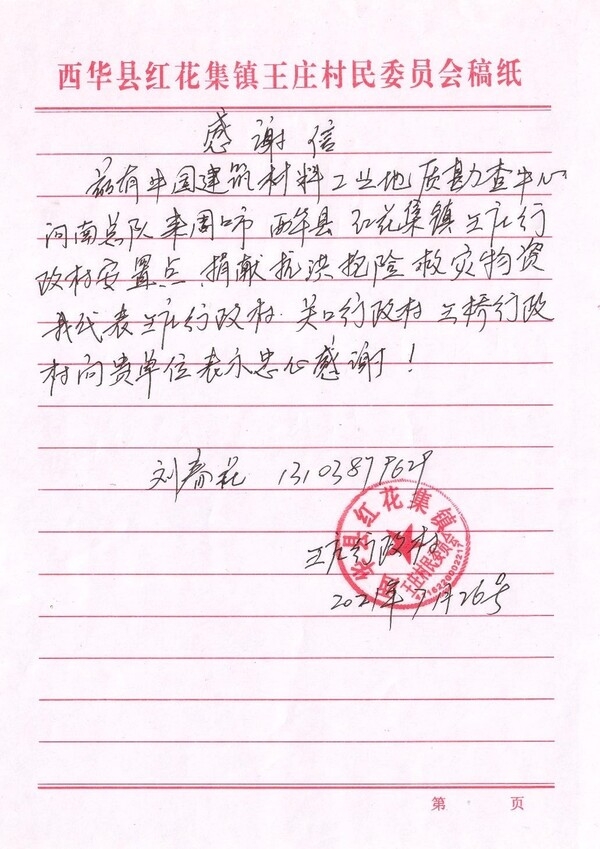 西华县红花集镇王庄村民委员会稿纸
感谢信
兹有中国建筑材料工业地质勘查中心
河南总队来周口市 西华县 红花集镇王庄行
政村安置点、捐献抗洪抢险救灾物资
我代表王庄行政村. 关口行政村 土桥行政
村向贵单位表示忠心感谢!
刘春花 13103879629
王庄行政村
2021年7月26号
西华县红花集镇
王庄村民委员会
第 页